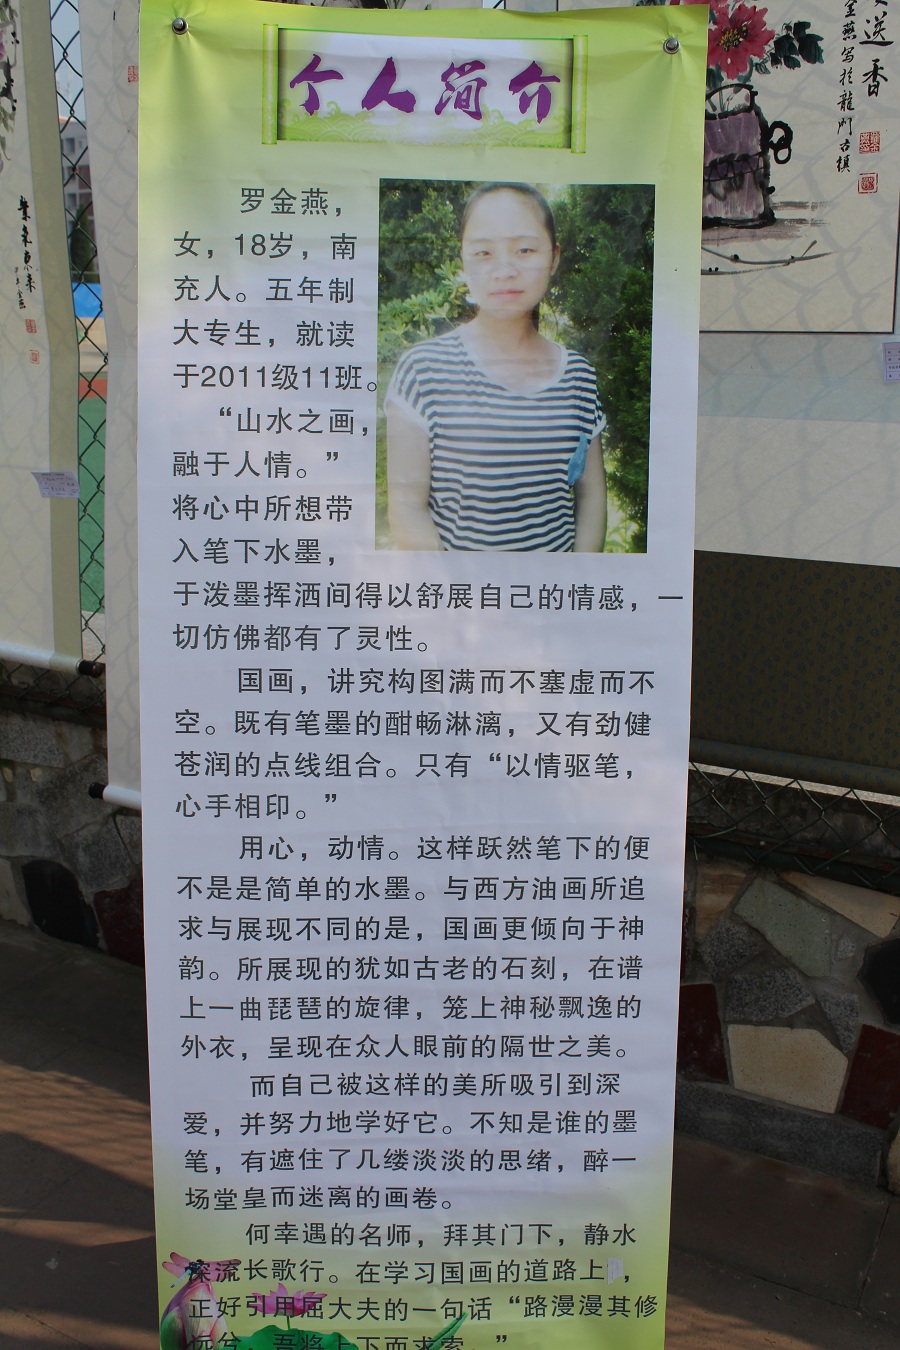 个人简介
罗金燕，
女，18岁，南
充人。五年制
大专生，就读
于2011级11班。
“山水之画，
融于人情。”
将心中所想带
入笔下水墨，
于泼墨挥洒间得以舒展自己的情感，一
切仿佛都有了灵性。
国画，讲究构图满而不塞虚而不
空。既有笔墨的酣畅淋漓，又有劲健
苍润的点线组合。只有“以情驱笔，
心手相印。”
用心，动情。这样跃然笔下的便
不是是简单的水墨。与西方油画所追
求与展现不同的是，国画更倾向于神
韵。所展现的犹如古老的石刻，在谱
上一曲琵琶的旋律，笼上神秘飘逸的
外衣，呈现在众人眼前的隔世之美。
而自己被这样的美所吸引到深
爱，并努力地学好它。不知是谁的墨
笔，有遮住了几缕淡淡的思绪，醉一
场堂皇而迷离的画卷。
何幸遇的名师，拜其门下，静水
深流长歌行。在学习国画的道路上，
正好引用屈大夫的一句话“路漫漫其修
远兮，吾将上下而求索。”
送香
金燕写于龙门古镇